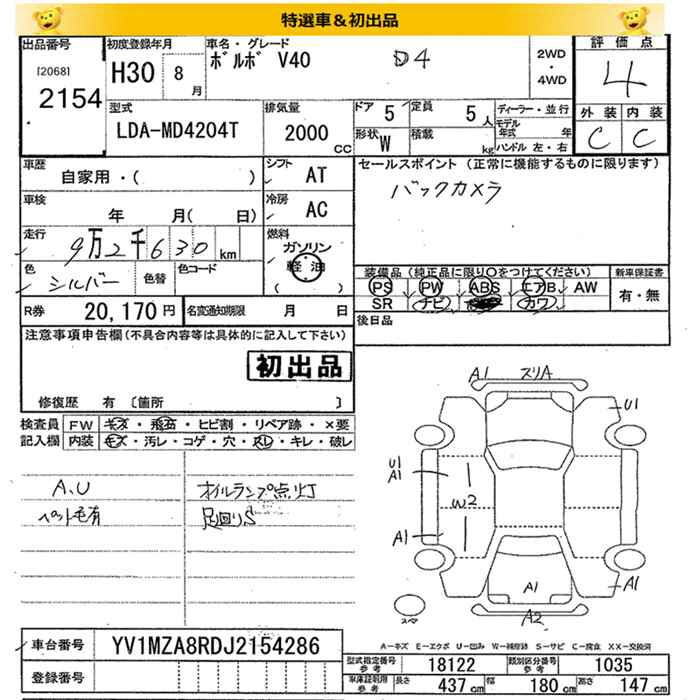 特選車＆初出品
出品番号 初度登録年月 車名・グレード 評価点
[2068]
2154 H30 8月 ボルボ V40 D4 2WD・4WD 4
型式 排気量 ドア 5 定員 5人 ディーラー・並行 外装 内装
LDA-MD4204T 2000cc 形状 W 積載 kg モデル年式 年 C C
ハンドル 左・右
車歴 シフト セールスポイント (正常に機能するものに限ります)
自家用・( ) AT バックカメラ
車検 冷房
年 月( 日) AC
走行 燃料
9万2千630km ガソリン
軽油
( )
色 色替 色コード
シルバー
装備品 (純正品に限り○をつけてください) 新車保証書
PS PW ABS エアB AW 有・無
SR ナビ カワ
R券 20,170円 名変通知期限 月 日 後日品
注意事項申告欄 (不具合内容等は具体的に記入して下さい)
初出品
修復歴 有 〔箇所 〕
検査員 FW キズ・飛石・ヒビ割・リペア跡・×要
記入欄 内装 キズ・汚レ・コゲ・穴・スレ・キレ・破レ
A1 スリA
U1
U1
A1
W2
A1
A1
A1
A2
スマ
A.U オイルランプ点灯
ペット毛有 足回りS
A－キズ E－エクボ U－凹み W－補修跡 S－サビ C－腐食 XX－交換済
車台番号 YV1MZA8RDJ2154286
登録番号
型式指定番号 参考 18122 類別区分番号 参考 1035
車庫証明用 参考 長さ 437cm 幅 180cm 高さ 147cm